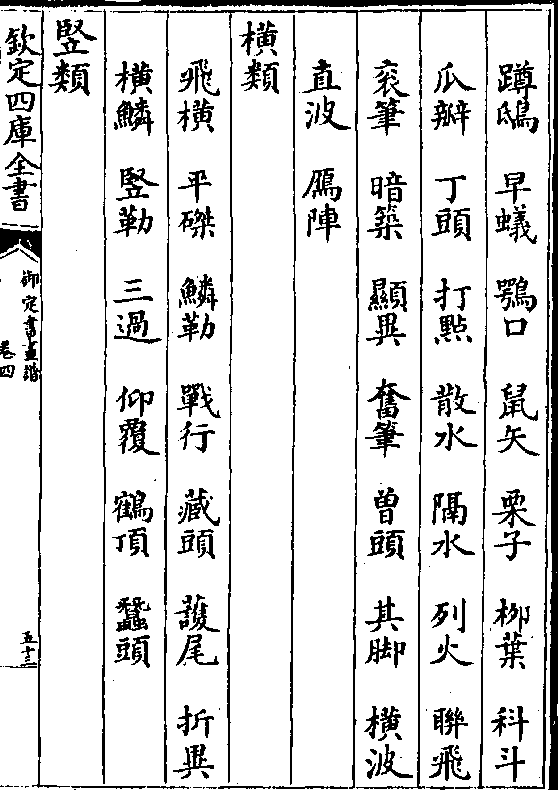 蹲鴟　早蟻　鶚口　鼠矢　栗子　栁葉　科斗
瓜瓣　丁頭　打㸃　散水　隔水　列火　聯飛
衮筆　暗築　顯異　奮筆　曽頭　其脚　橫波
直波　鴈陣
橫類
飛橫　平磔　鱗勒　戰行　藏頭　䕶尾　折異
橫鱗　竪勒　三過　仰覆　鶴頂　蠶頭
竪類
欽定四庫全書
御定書畫譜
卷四
五十三